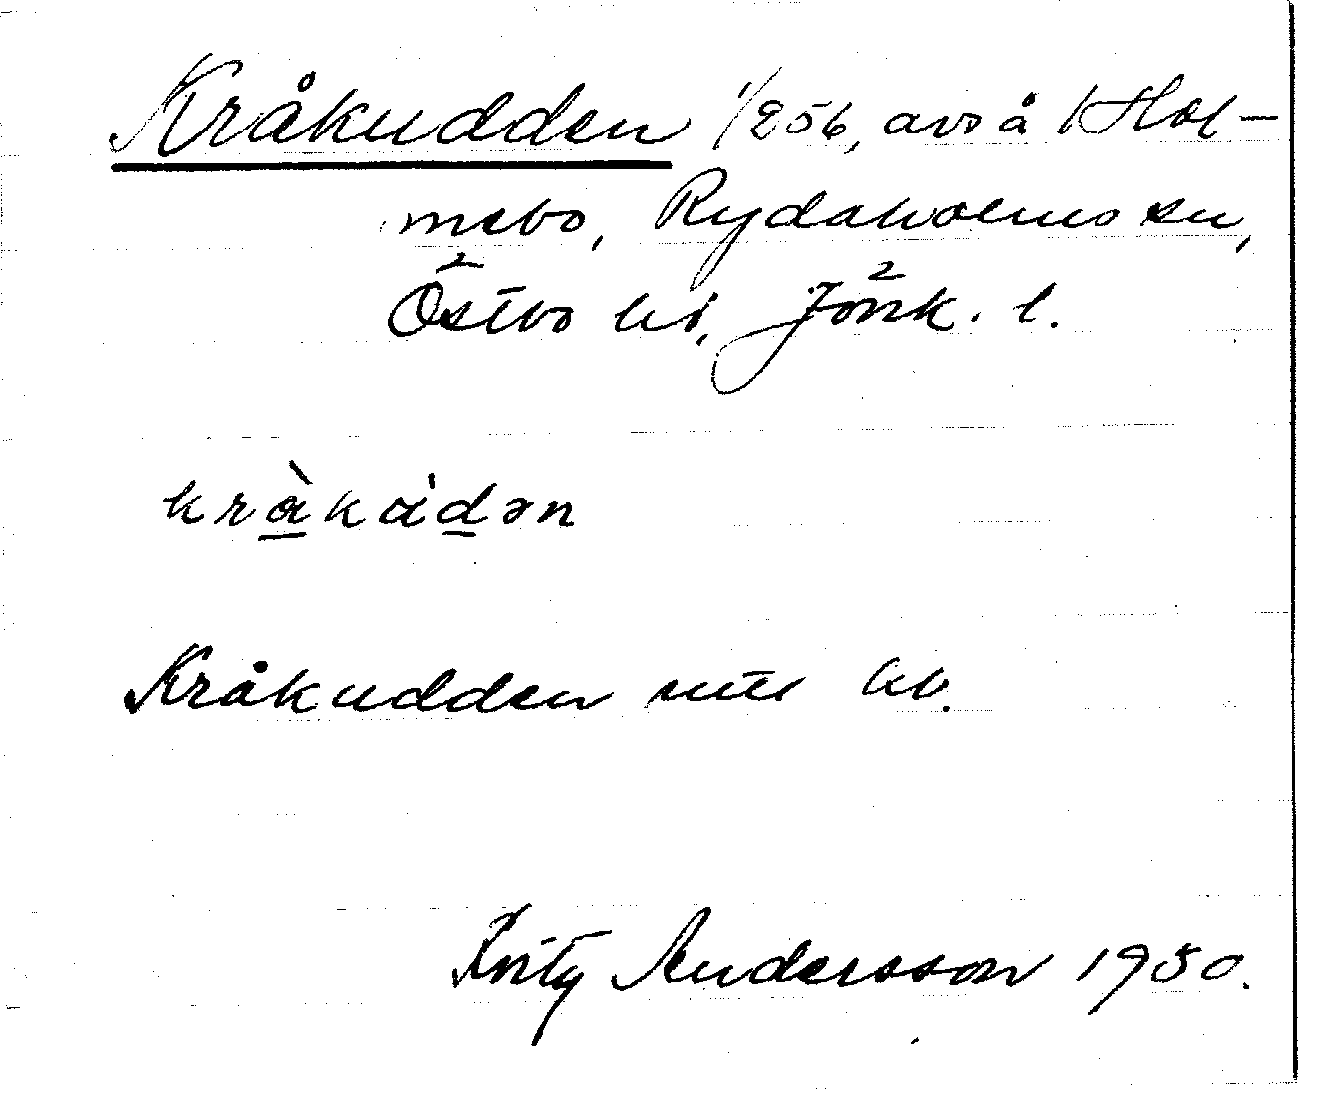 Kråkudden 1/256, avs å 1 Hol-
mebo, Rydaholms sn,
Östbo hd, Jönk. l.
kràkádən
Kråkudden enl hb.
Fritz Andersson 1950.